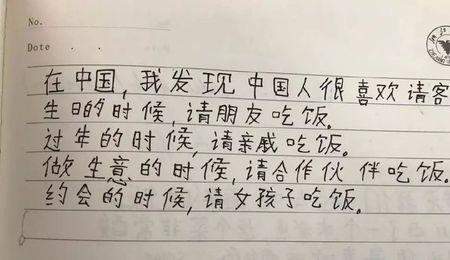 No.
Date
在中国,我发现中国人很喜欢请客
生日的时候,请朋友吃饭。
过年的时候,请亲戚吃饭。
做生意的时候,请合作伙伴吃饭。
约会的时候,请女孩子吃饭。